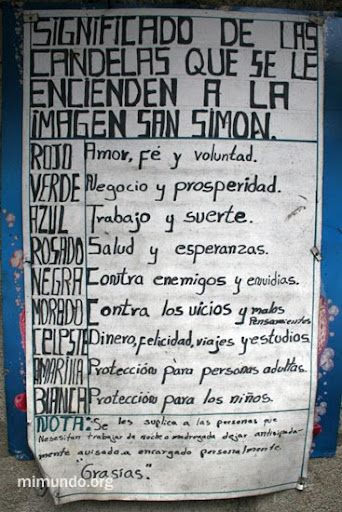 SIGNIFICADO DE LAS
CANDELAS QUE SE LE
ENCIENDEN A LA
IMAGEN SAN SIMON.
ROJO Amor, fé y voluntad.
VERDE Negocio y prosperidad.
AZUL Trabajo y suerte.
ROSADO Salud y esperanzas.
NEGRA Contra enemigos y envidias.
MORADO Contra los vicios y malos
Pensamientos
CELESTE Dinero, felicidad, viajes y estudios
AMARILLA Protección para personas adultas.
BLANCA Protección para los niños.
NOTA: Se les suplica a las personas que
Necesitan trabajar de noche o madrugada dejar anticipada-
mente avisado a encargado personalmente.
"Grasias."
mimundo.org